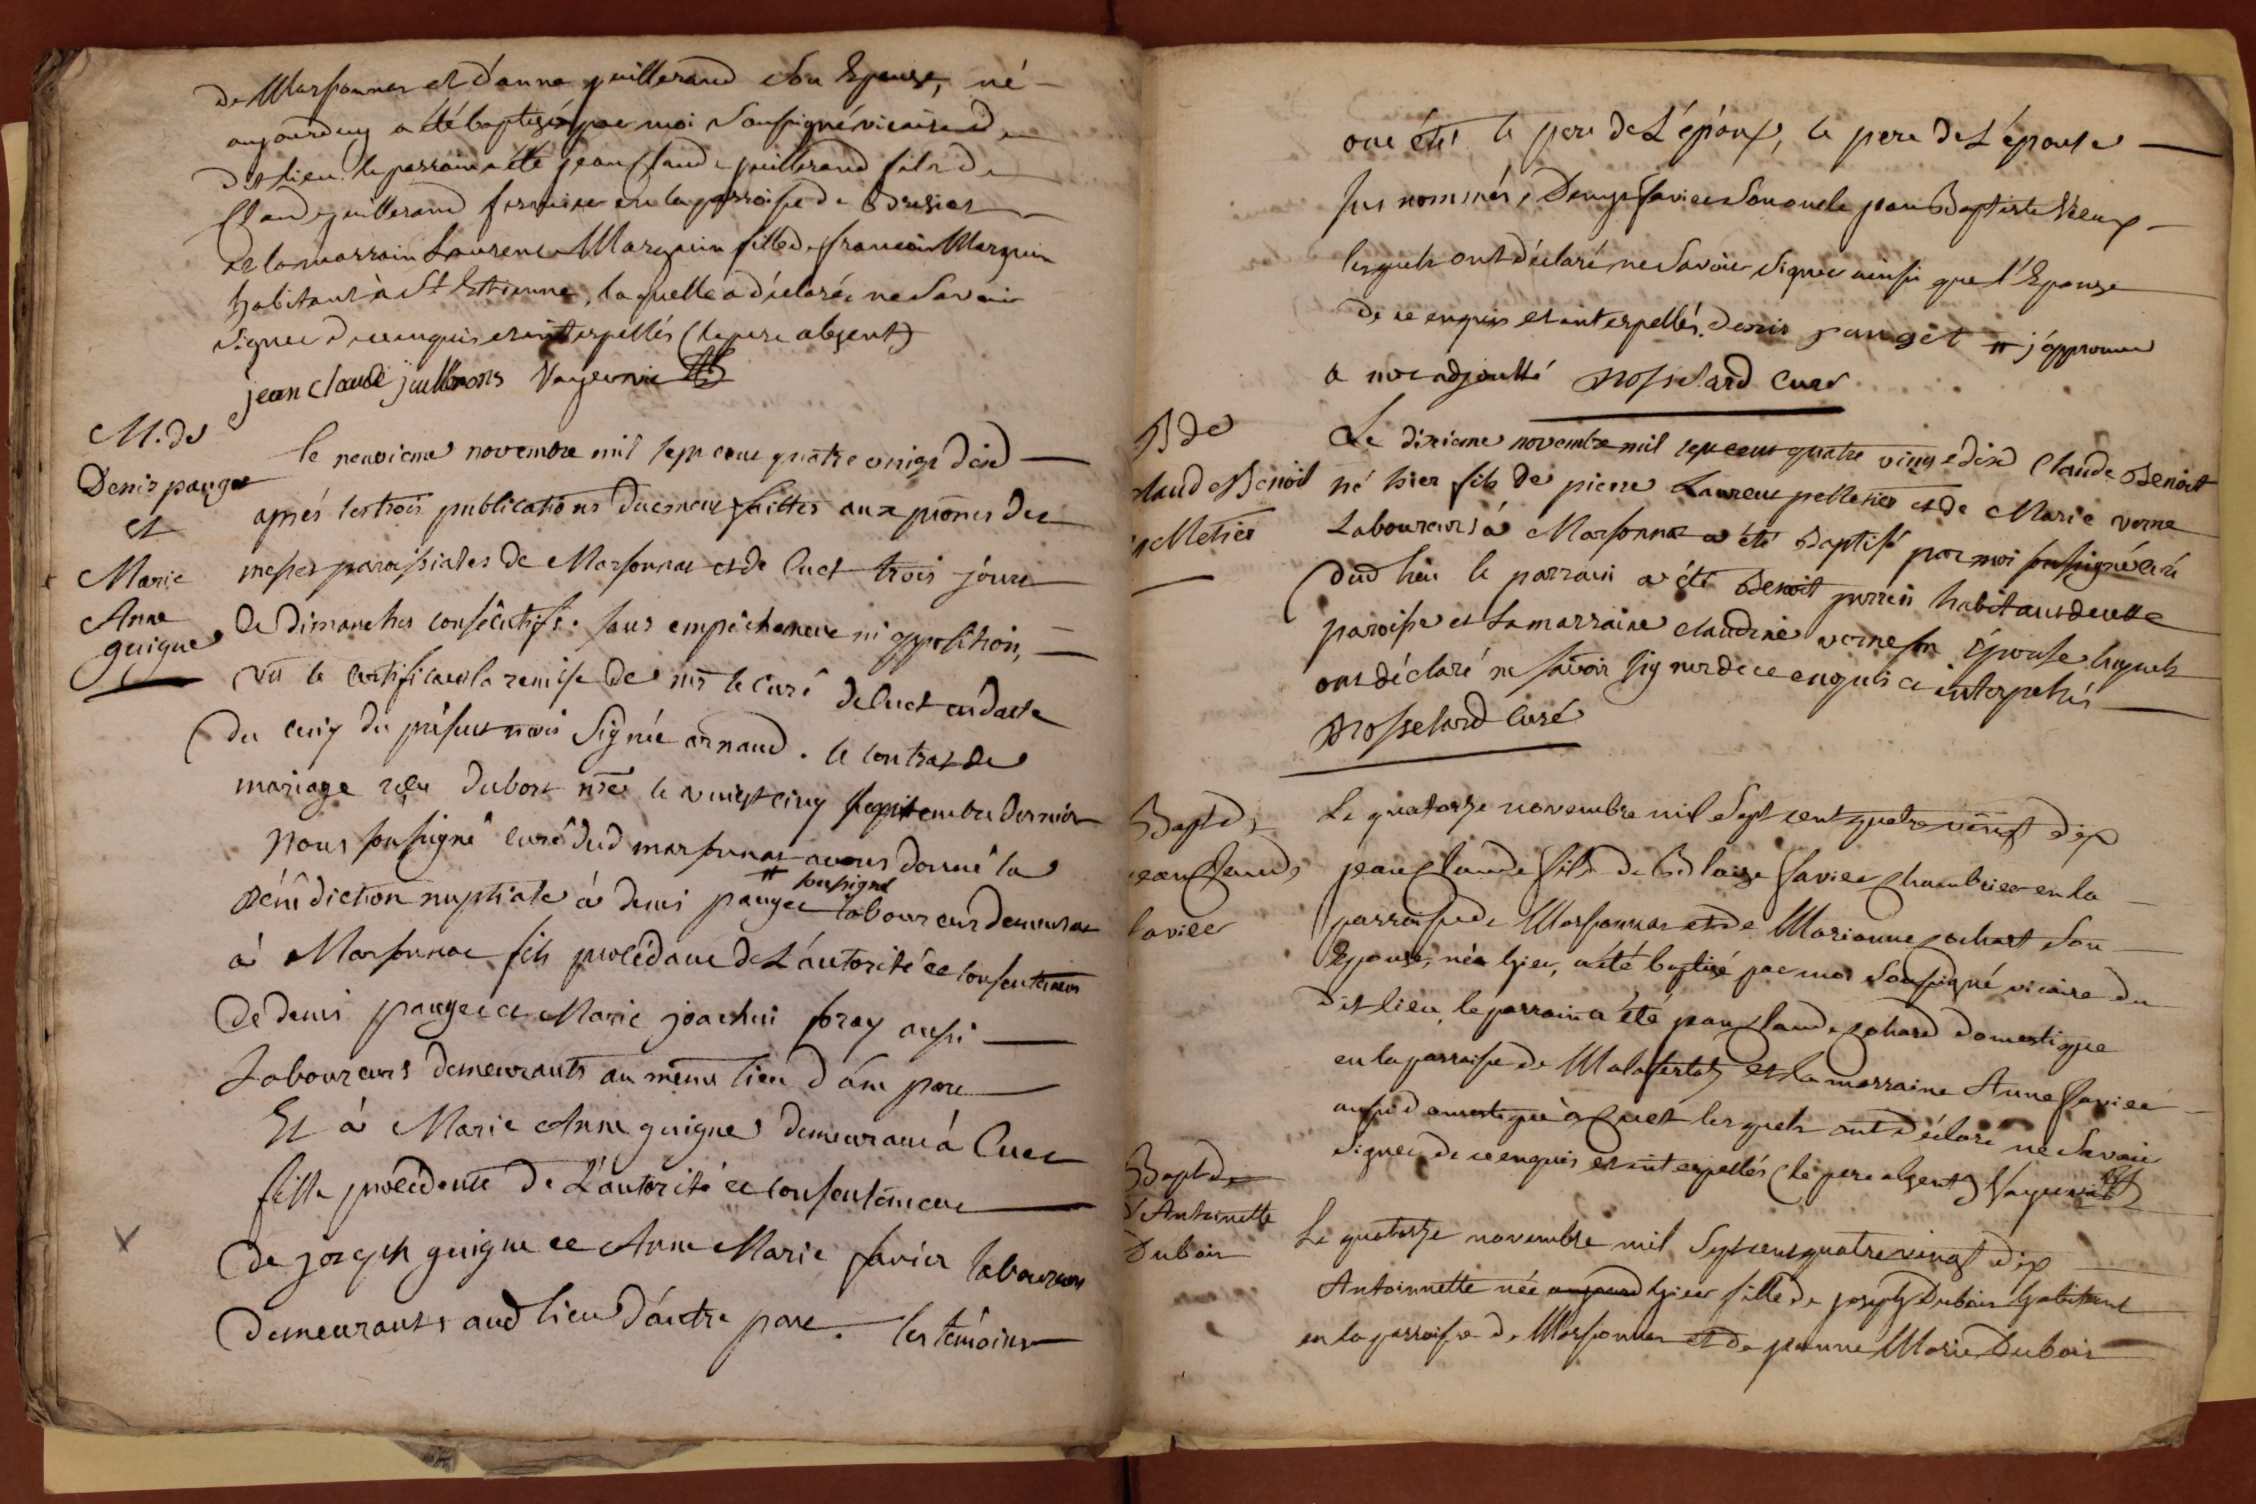 de Marsonnas et d'anne guillerand Son Epouse, né
aujourd'huy a été baptizé par moi Soussigné vicaire du
dit lieu. le parrain a été jean Claude guillerand fils de
Claude guillerand fermier en la parroisse de
et la marrain Laurence Marguin fille de françois Marguin
habitant à St Etienne, laquelle a déclarée ne Savoir
Signer de ce enquis et interpellés (le pere absent)
jean claude
M. de
Denis pauget
et
Marie
Anne
guigue
le neuvieme novembre mil sept cent quatre vingt dix
aprés les trois publications duement faittes aux prônes des
messes paroissiales de Marsonnas et de Cuet trois jours
de dimanches consécutifs. sans empêchement ni opposition,
vû le certificat la remise de mr le curé de Cuet en datte
du cinq du présent mois Signée arnaud. le contrat de
mariage reçu dubost nre le vingt cinq septembre dernier
Nous soussigné curé dud marsonnas avons donné la
soussigné
Bénédiction nuptiale à denis pauget laboureur demeurant
à Marsonnas fils procédant de L'autorité et consentement
de denis pauget et Marie joachim foray aussi
Laboureurs demeurants au même lieu d'une part
Et à Marie Anne guigue demeurant à Cuet
fille procédente de L'autorité et consentement
de joseph guigue et Anne Marie favier laboureurs
demeurants aud lieu d'autre part. les témoins
ont été le pere de L'époux, le pere de L'épouse
sus nommés, Denys favier Son oncle jean Baptiste Vieux
lesquels ont déclaré ne Savoir Signer ainsi que l'Epouse
de ce enquis et interpellés. denis pauget # j'approuve
a mot adjoutté Mosselard Curé
B de
Claude Benoit
pelletier
Le dixieme novembre mil sept cent quatre vingt dix Claude Benoit
né hier fils de pierre Laurent pelletier et de Marie verne
Laboureurs à Marsonnas a été Baptisé par moi soussigné curé
dud lieu le parrain a été Benoit perrin habitant de cette
paroisse et la marraine claudine verne son épouse lesquels
ont déclaré ne savoir signer de ce enquis et interpellés
Mosselard Curé
Bapt de
jean Claude
favier
Le quatorze novembre mil Sept cent quatre vingt dix
jean Claude fils de Blaise favier Chambrier en la
parroisse de Marsonnas et de Marianne pochart Son
Epouse, né hier, a été baptizé par moi Soussigné vicaire du
dit lieu, le parrain a été jean Claude pochard domestique
en la parroisse de Malafertaz et la marraine Anne favier
aussi domestique à Cuet lesquels ont déclaré ne Savoir
Signer de ce enquis et interpellés (le pere absent)
Bapt de
d'Antoinette
Dubois
Le quatorze novembre mil Sept cent quatre vingt dix
Antoinette née hier fille de joseph Dubois habitant
en la parroisse de Marsonnas et de jeanne Marie Dubois